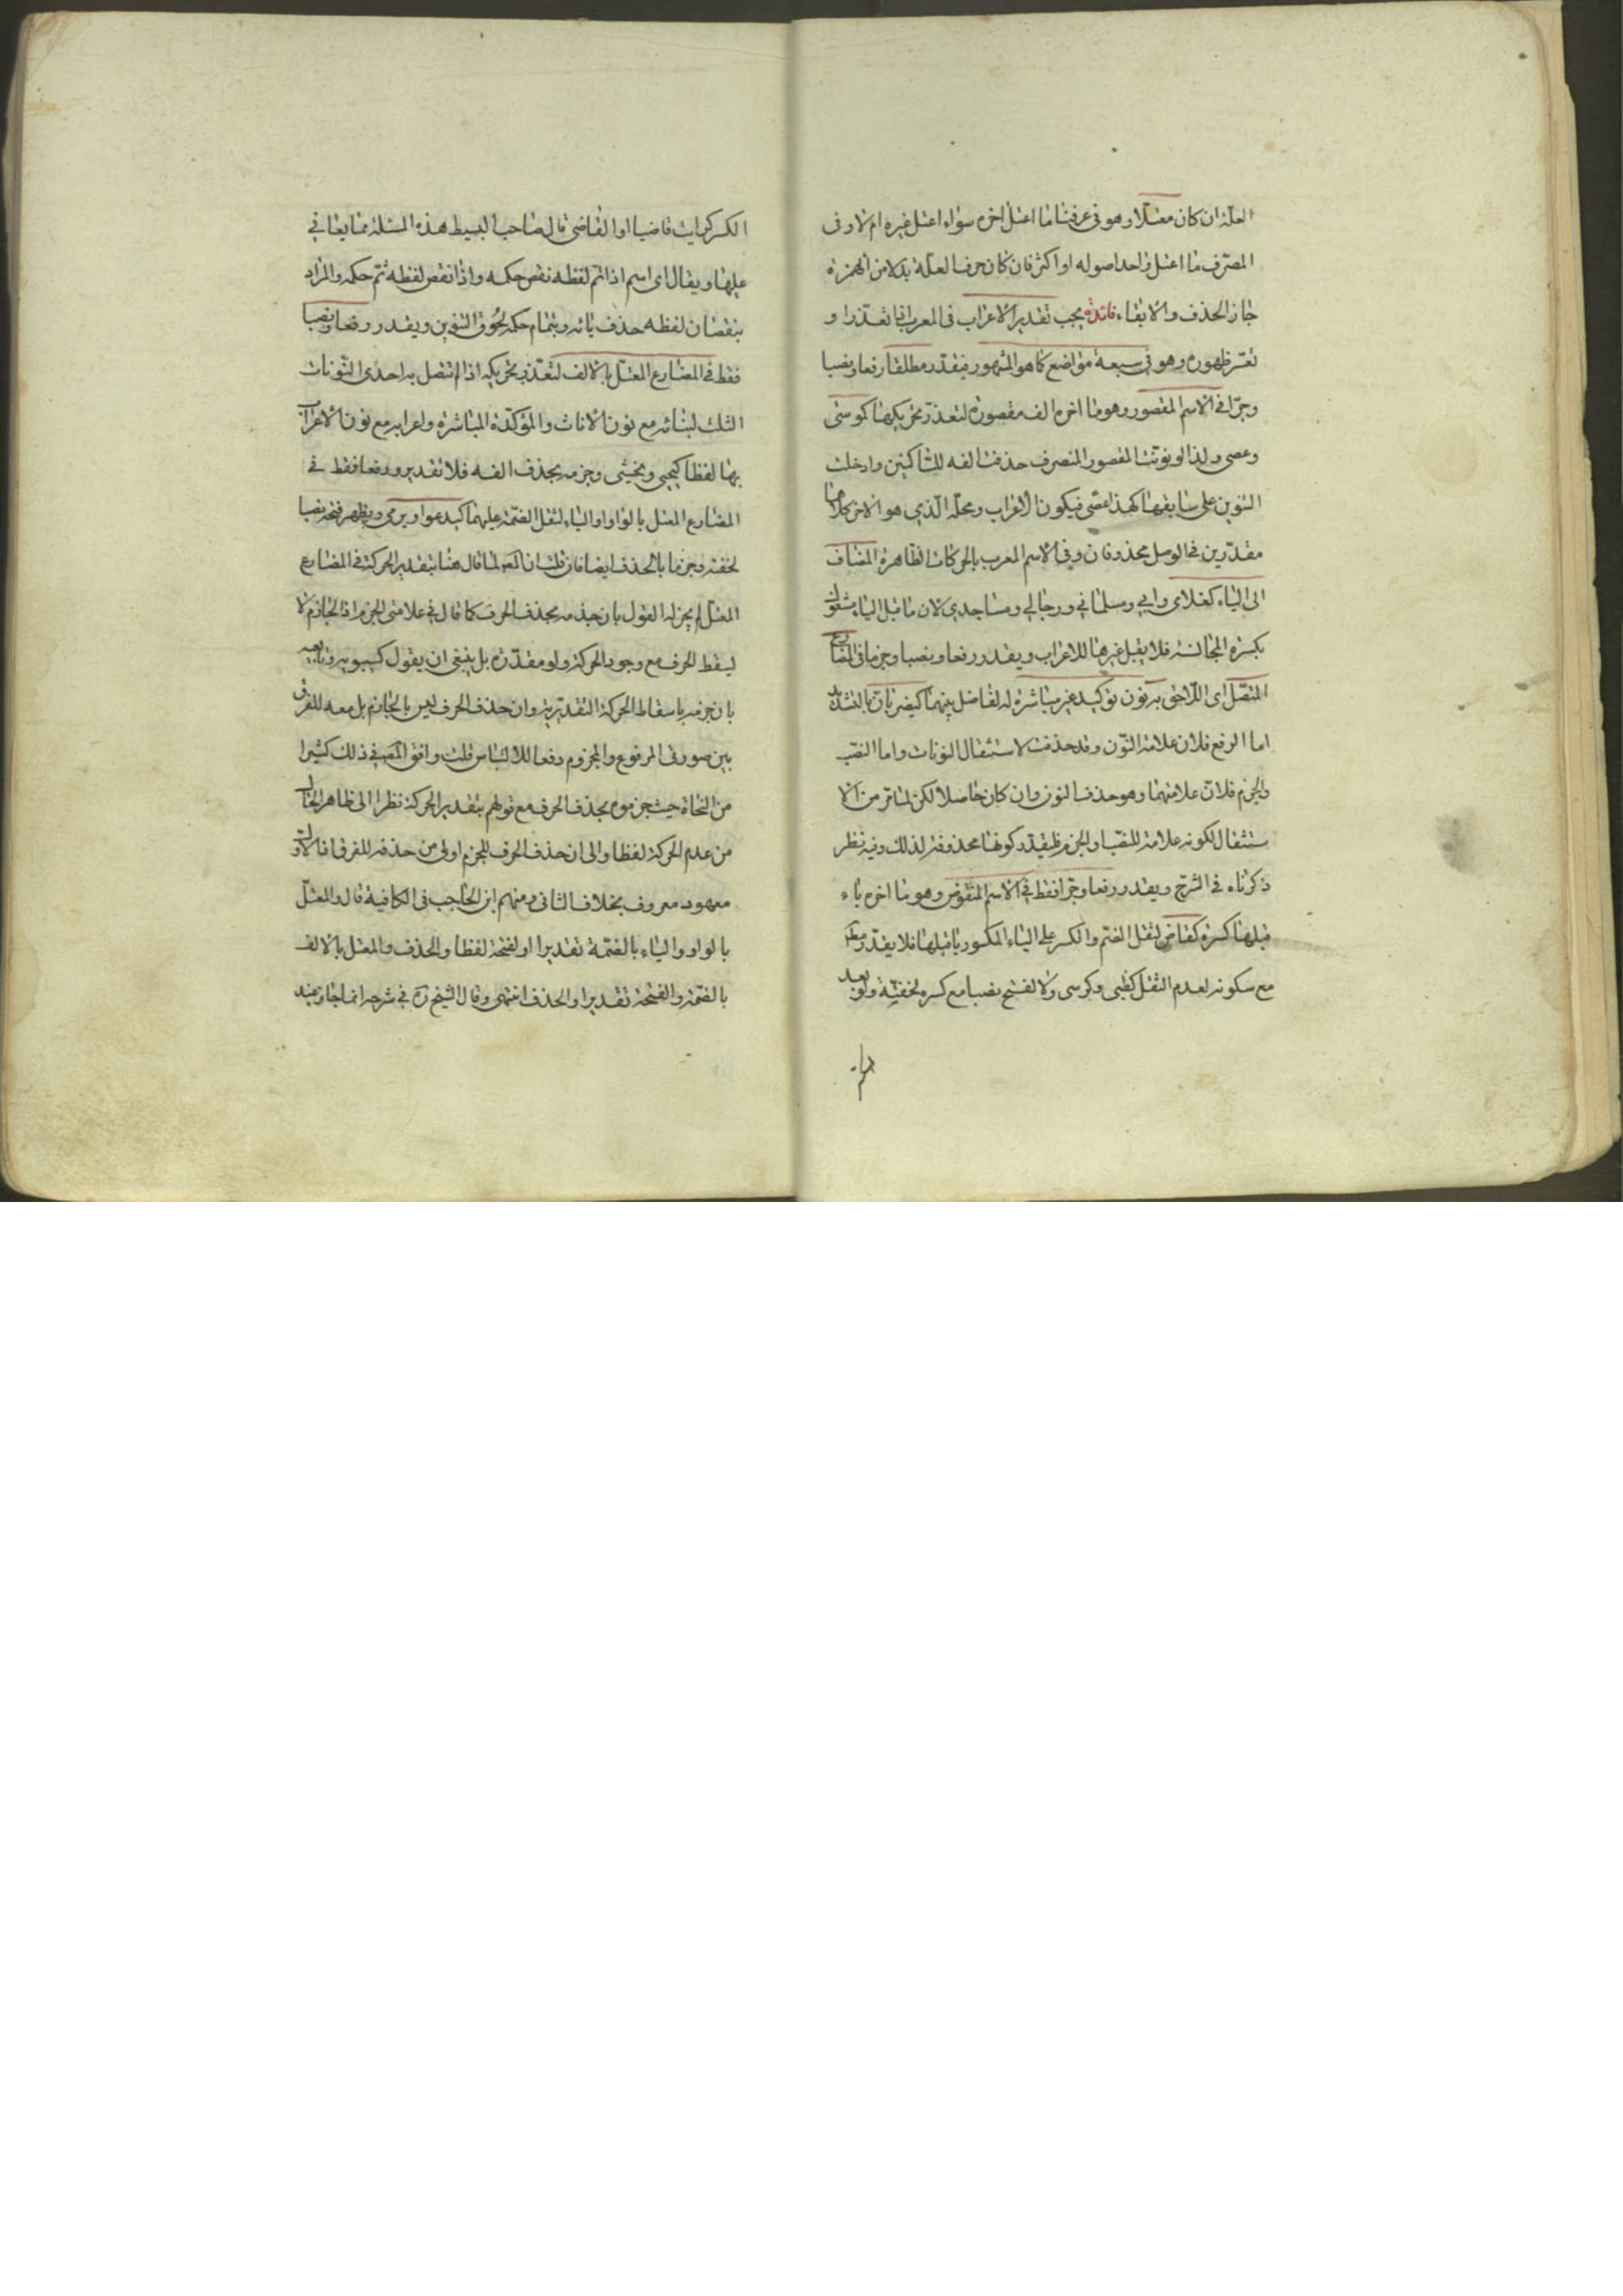 العلة ان كان معتلا وهو فى عرفنا ما اعتل اخره سواء اعتل غيره ام لا وفى
المصرف ما اعتل واحد اصوله او اكثر فان كان حرف العلة بدلا من الهمزة
جاز الحذف والابقاء فائدة يجب تقدير الاعراب فى المعرب اما تعذرا و
تعسر ظهوره وهو فى سبعة مواضع كما هو المشهور فيقدر مطلقا رفعا ونصبا
وجرا فى الاسم المقصور وهو ما اخره الف مقصورة لتعذر تحريكها كموسى
وعصى ولذا لو نونت المقصور المنصرف حذفت الفه للساكنين وادخلت
التنوين على سابقها كهذا عصى فيكون الاعراب ومحله الذى هو الاخر كلاهما
مقدرين فى الوصل محذوفان وفى الاسم المعرب بالحركات الظاهرة المضاف
الى الياء كغلامى وابى ومسلماتى ورجالى ومساجدى لان ما قبل الياء مشغول
بكسرة المجانسة فلا يقبل غيرها للاعراب ويقدر رفعا ونصبا وجزما فى المضارع
المتصل اى اللاحق به نون توكيد غير مباشرة له لفاصل بينهما كيضربان بالتشديد
اما الرفع فلان علامته النون وقد حذفت لاستثقال النونات واما النصب
والجزم فلان علامتهما وهو حذف النون وان كان حاصلا لكن لما تر من الا
ستثقال لكونه علامة للنصب او الجزم فليقدر كونها محذوفة لذلك وفيه نظر
ذكرناه فى الشرح ويقدر رفعا وجرا فقط فى الاسم المنقوص وهو ما اخره ياء
قبلها كسرة كقاض لثقل الضم والكسر على الياء المكسور ما قبلها فلا يقدر
مع سكونه لعدم الثقل كظبى وكرسى ولا الفتح نصبا مع كسره لخفته ولو بعد
الكسر كرايت قاضيا او القاضى قال صاحب البسيط هذه المسئلة مما يعايى
عليها ويقال اى اسم اذا تم لفظه نقص حكمه واذا نقص لفظه تم حكمه والمراد
بنقصان لفظه حذف يائه وبتمام حكمه لحوق التنوين ويقدر رفعا ونصبا
فقط فى المضارع المعتل بالالف لتعذر تحريكه اذا لم تتصل به احدى النونات
الثلث لبنائه مع نون الاناث والمؤكدة المباشرة واعرابه مع نون الاعراب
بها لفظا كيحيى ويخشى وجزمه بحذف الفه فلا تقدير ورفعا فقط فى
المضارع المعتل بالواو او الياء لثقل الضمة عليهما كيدعو او يرمى ويظهر فتحه نصبا
لخفته وجزما بالحذف ايضا فان قلت ان المصـ لما قال هنا بتقدير الحركة فى المضارع
المعتل لم يجز له القول بان جزمه بحذف الحرف كما قال فى علامتى الجزم اذ الجازم لا
ليسقط الحرف مع وجود الحركة ولو مقدرة بل ينبغى ان يقول كسيبويه وتابعيه
بان جزمه باسقاط الحركة التقديرية وان حذف الحرف ليس بالجازم بل معه للفرق
بين صورتى المرفوع والمجزوم دفعا للالتباس قلت وافق المصـ فى ذلك كثيرا
من النحاة حيث جزموه بحذف الحرف مع قولهم بتقدير الحركة نظرا الى ظاهر الحال
من عدم الحركة لفظا والى ان حذف الحرف للجزم اولى من حذفه للفرق فالاول
معهود معروف بخلاف الثانى ومنهم ابن الحاجب فى الكافية قال والمعتل
بالواو والياء بالضمة تقديرا والفتحة لفظا والحذف والمعتل بالالف
بالضمة والفتحة تقديرا والحذف انتهى وقال الشيخ ره فى شرحه انما جاز عند